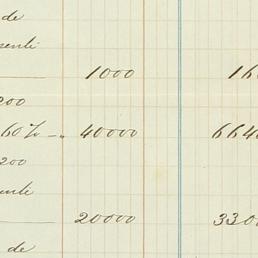 de
senti
1000 16
200
60% -„ 40000 664
200
senti
20000 330
de